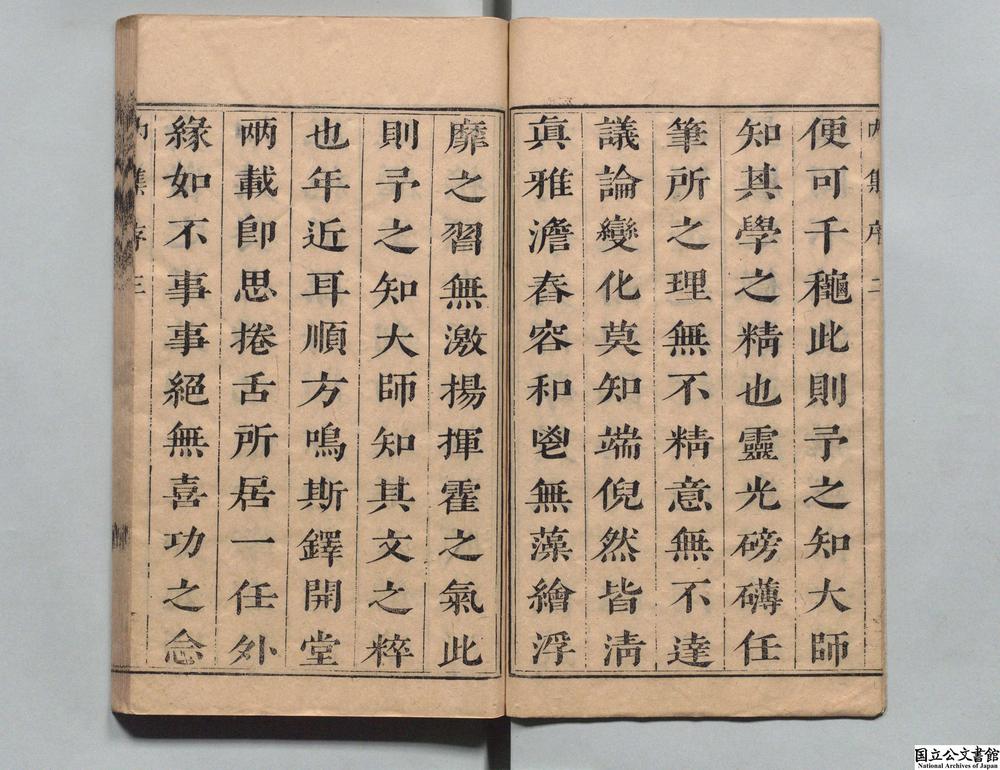 內集序 二
便可千龝此則予之知大師
知其學之精也靈光磅礡任
筆所之理無不精意無不達
議論變化莫知端倪然皆清
眞雅澹舂容和鬯無藻繪浮
靡之習無激揚揮霍之氣此
則予之知大師知其文之粹
也年近耳順方鳴斯鐸開堂
兩載卽思捲舌所居一任外
緣如不事事絕無喜功之念
內集序 三
国立公文書館
National Archives of Japan